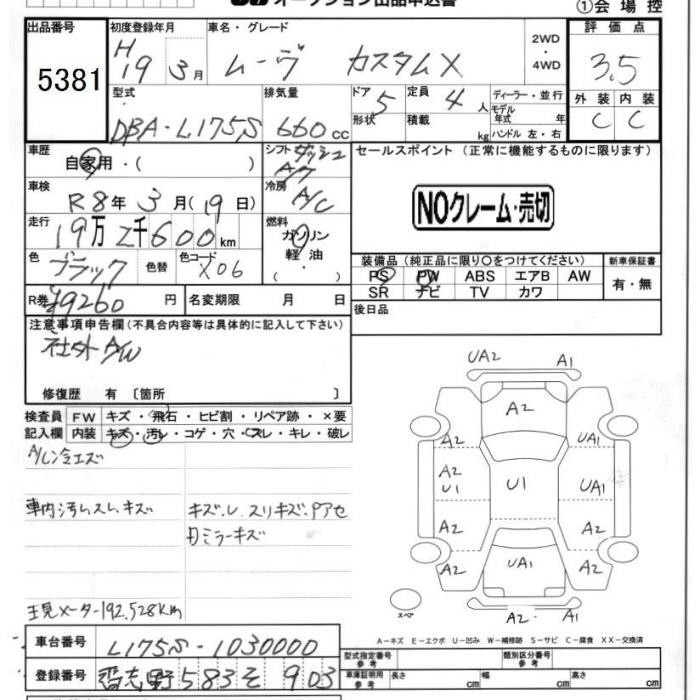 オークション出品申込書
①会場控
出品番号 初度登録年月 車名・グレード 2WD・4WD 評価点
5381 H19年3月 ムーヴ カスタムX 3.5
型式 排気量 ドア 5 定員 4人 ディーラー・並行 外装 内装
DBA-L175S 660cc 形状 積載 kg モデル年式 年 C C
ハンドル 左・右
車歴 シフト ダッシュ セールスポイント (正常に機能するものに限ります)
自家用・( ) A/T
車検 冷房 NOクレーム・売切
R8年3月(19日) A/C
走行 燃料
19万2千600km ガソリン
色 色替 色コード 軽油 装備品(純正品に限り○をつけてください) 新車保証書
ブラック X06 ( ) PS PW ABS エアB AW 有・無
R券 ¥9260円 名変期限 月 日 SR ナビ TV カワ
注意事項申告欄(不具合内容等は具体的に記入して下さい) 後日品
社外A/W
修復歴 有 〔箇所 〕
検査員 FW キズ・飛石・ヒビ割・リペア跡・×要
記入欄 内装 キズ・汚レ・コゲ・穴・スレ・キレ・破レ
A/C冷エズ
車内汚レスレキズ キズ・U・スリキズ・Pアセ
ドミラーキズ
現メーター192,528km
UA2 A1
A2
A2 UA1
A2 U1 U1 UA1
A2 A2
A2 UA1 A2
スペア A2 - A1
A-キズ E-エクボ U-凹み W-補修跡 S-サビ C-腐食 XX-交換済
車台番号 L175S-1030000
登録番号 習志野 583 そ 903
型式指定番号 参考 類別区分番号 参考
車庫証明用 参考 長さ cm 幅 cm 高さ cm